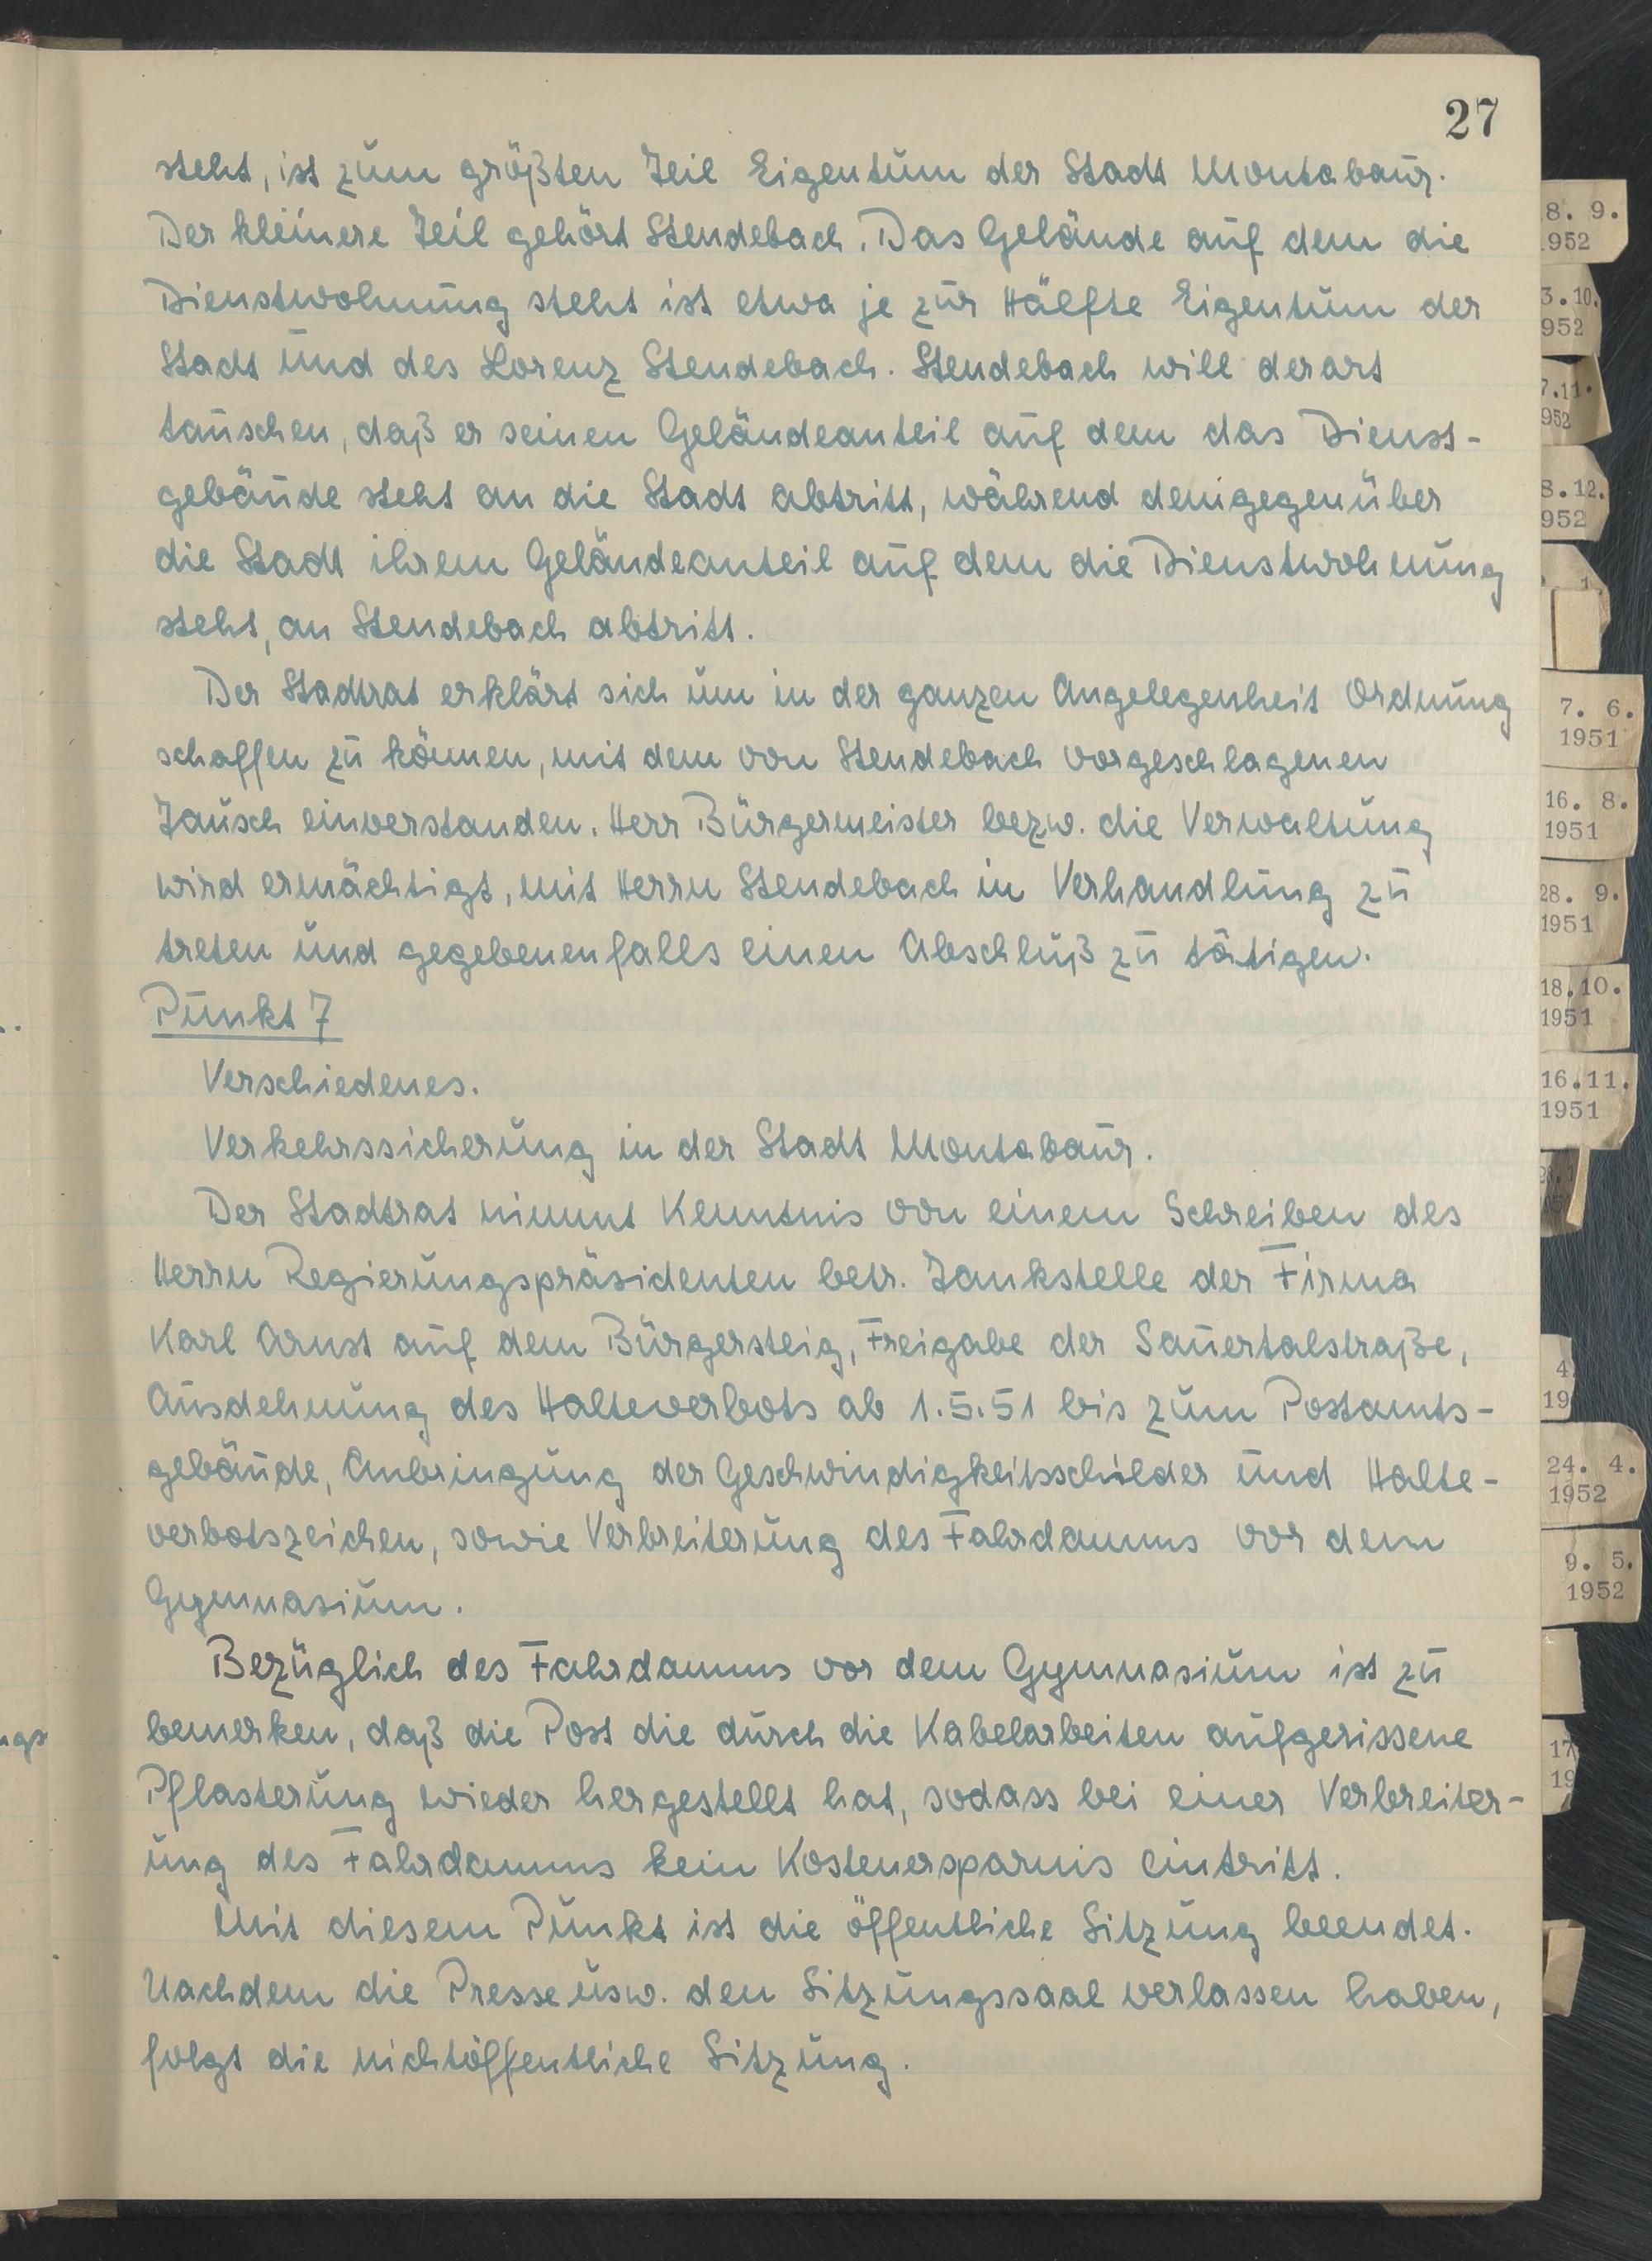 27
steht, ist zum größten Teil Eigentum der Stadt Montabaur.
Der kleinere Teil gehört Stendebach. Das Gelände auf dem die
Dienstwohnung steht ist etwa je zur Hälfte Eigentum der
Stadt und des Lorenz Stendebach. Stendebach will derart
tauschen, daß er seinen Geländeanteil auf dem das Dienst-
gebäude steht an die Stadt abtritt, während demgegenüber
die Stadt ihrem Geländeanteil auf dem die Dienstwohnung
steht, an Stendebach abtritt.
Der Stadtrat erklärt sich um in der ganzen Angelegenheit Ordnung
schaffen zu können, mit dem von Stendebach vorgeschlagenen
Tausch einverstanden. Herr Bürgermeister bezw. die Verwaltung
wird ermächtigt, mit Herrn Stendebach in Verhandlung zu
treten und gegebenenfalls einen Abschluß zu tätigen.
Punkt 7
Verschiedenes.
Verkehrssicherung in der Stadt Montabaur.
Der Stadtrat nimmt Kenntnis von einem Schreiben des
Herrn Regierungspräsidenten betr. Tankstelle der Firma
Karl Arnst auf dem Bürgersteig, Freigabe der Sauertalstraße,
Ausdehnung des Halteverbots ab 1.5.51 bis zum Postamts-
gebäude, Anbringung der Geschwindigkeitsschilder und Halte-
verbotszeichen, sowie Verbreiterung des Fahrdamms vor dem
Gymnasium.
Bezüglich des Fahrdamms vor dem Gymnasium ist zu
bemerken, daß die Post die durch die Kabelarbeiten aufgerissene
Pflasterung wieder hergestellt hat, sodass bei einer Verbreiter-
ung des Fahrdamms kein Kostenersparnis eintritt.
Mit diesem Punkt ist die öffentliche Sitzung beendet.
Nachdem die Presse usw. den Sitzungssaal verlassen haben,
folgt die nichtöffentliche Sitzung.
8. 9.
1952
3.10.
952
7.11.
952
8.12.
952
1
7. 6.
1951
16. 8.
1951
28. 9.
1951
18.10.
1951
16.11.
1951
4
19
24. 4.
1952
9. 5.
1952
17
19